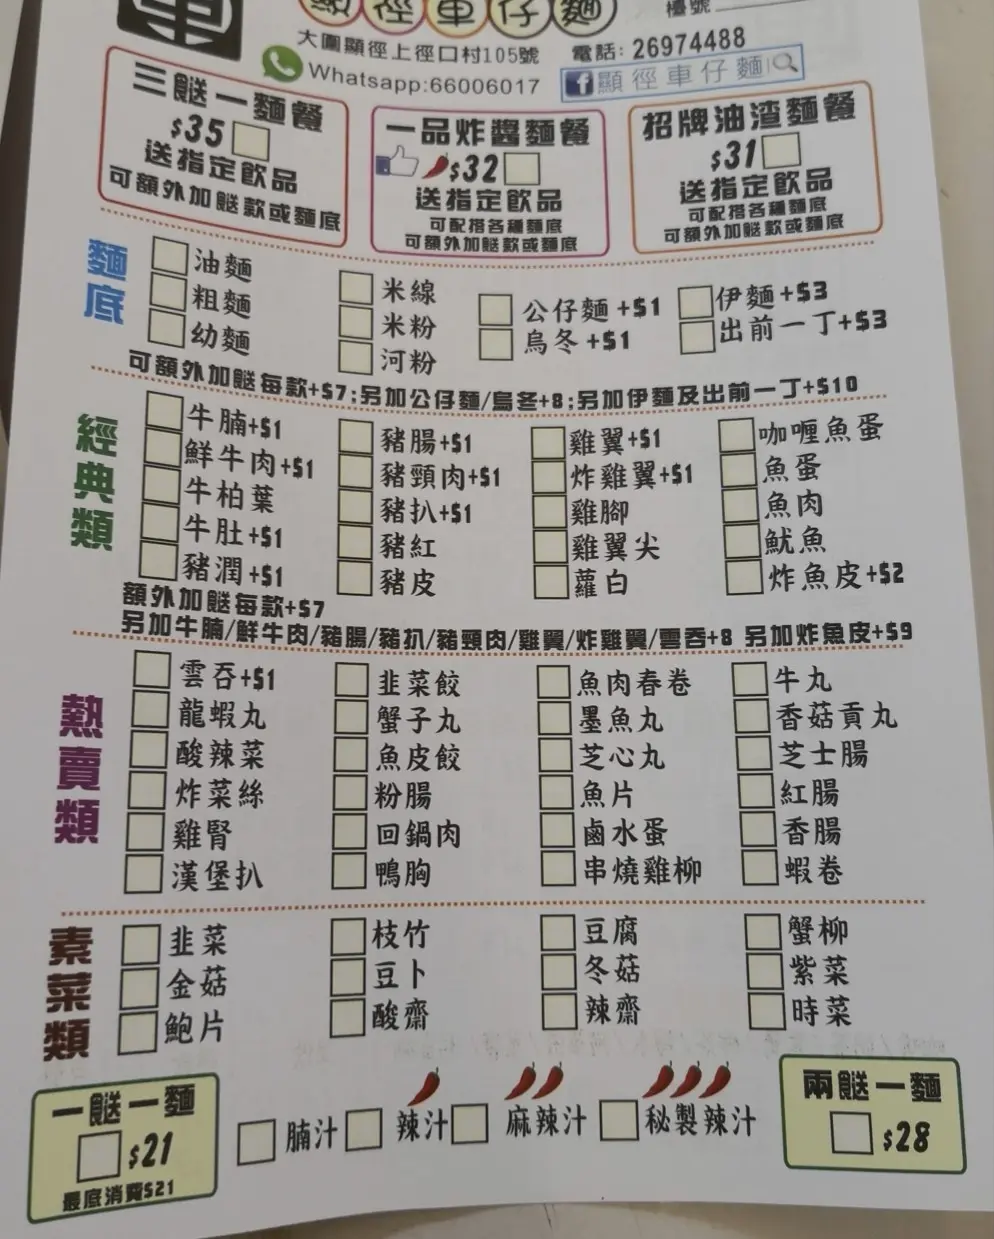 車
顯徑車仔麵
檯號
大圍顯徑上徑口村105號 電話: 26974488
Whatsapp:66006017
f 顯徑車仔麵
三餸一麵餐
$35
送指定飲品
可額外加餸款或麵底
一品炸醬麵餐
$32
送指定飲品
可配搭各種麵底
可額外加餸款或麵底
招牌油渣麵餐
$31
送指定飲品
可配搭各種麵底
可額外加餸款或麵底
麵底
油麵 米線 公仔麵+$1 伊麵+$3
粗麵 米粉 烏冬+$1 出前一丁+$3
幼麵 河粉
可額外加餸每款+$7;另加公仔麵/烏冬+8;另加伊麵及出前一丁+$10
經典類
牛腩+$1 豬腸+$1 雞翼+$1 咖喱魚蛋
鮮牛肉+$1 豬頸肉+$1 炸雞翼+$1 魚蛋
牛柏葉 豬扒+$1 雞腳 魚肉
牛肚+$1 豬紅 雞翼尖 魷魚
豬潤+$1 豬皮 蘿白 炸魚皮+$2
額外加餸每款+$7
另加牛腩/鮮牛肉/豬腸/豬扒/豬頸肉/雞翼/炸雞翼/雲吞+8 另加炸魚皮+$9
熱賣類
雲吞+$1 韭菜餃 魚肉春卷 牛丸
龍蝦丸 蟹子丸 墨魚丸 香菇貢丸
酸辣菜 魚皮餃 芝心丸 芝士腸
炸菜絲 粉腸 魚片 紅腸
雞腎 回鍋肉 鹵水蛋 香腸
漢堡扒 鴨胸 串燒雞柳 蝦卷
素菜類
韭菜 枝竹 豆腐 蟹柳
金菇 豆卜 冬菇 紫菜
鮑片 酸齋 辣齋 時菜
一餸一麵
$21
最底消費$21
腩汁 辣汁 麻辣汁 秘製辣汁
兩餸一麵
$28